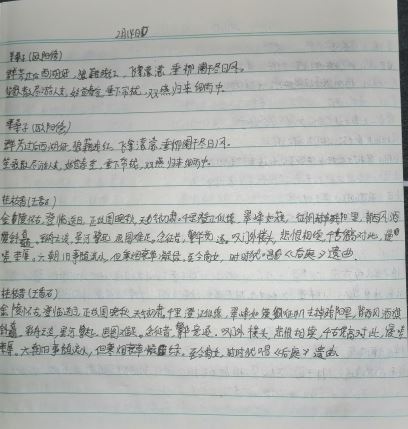 2月14日
采桑子(欧阳修)
群芳过后西湖好,狼藉残红,飞絮濛濛,垂柳阑干尽日风。
笙歌散尽游人去,始觉春空,垂下帘栊,双燕归来细雨中。
采桑子(欧阳修)
群芳过后西湖好,狼藉残红,飞絮濛濛,垂柳阑干尽日风。
笙歌散尽游人去,始觉春空,垂下帘栊,双燕归来细雨中。
桂枝香(王安石)
登临送目,正故国晚秋,天气初肃。千里澄江似练,翠峰如簇。征帆去棹残阳里,背西风,酒
旗斜矗。彩舟云淡,星河鹭起,画图难足。念往昔,繁华竞逐,叹门外楼头,悲恨相续。千古凭高对此,漫嗟
荣辱。六朝旧事随流水,但寒烟衰草凝绿。至今商女,时时犹唱《后庭》遗曲。
桂枝香(王安石)
登临送目,正故国晚秋,天气初肃。千里澄江似练,翠峰如簇。征帆去棹残阳里,背西风,酒旗
斜矗。彩舟云淡,星河鹭起,画图难足。念往昔,繁华竞逐,叹门外楼头,悲恨相续。千古凭高对此,漫嗟
荣辱。六朝旧事随流水,但寒烟衰草凝绿。至今商女,时时犹唱《后庭》遗曲。